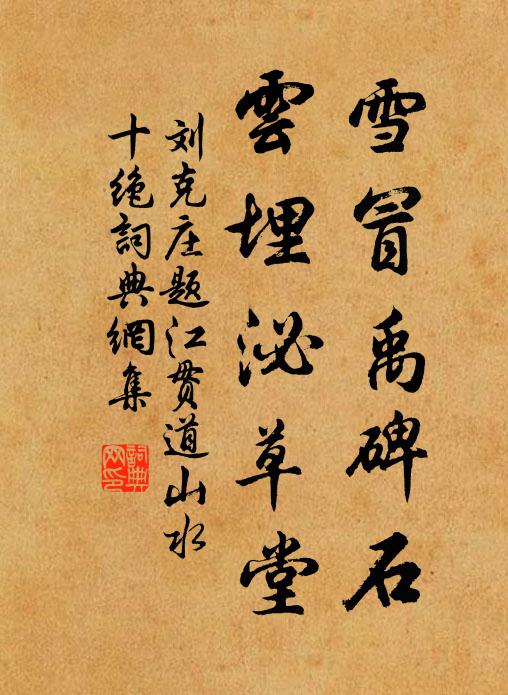 雪冒禹碑石
雲埋泌草堂
刘克庄题江贯道山水
十绝詞典網集
詞典
网印